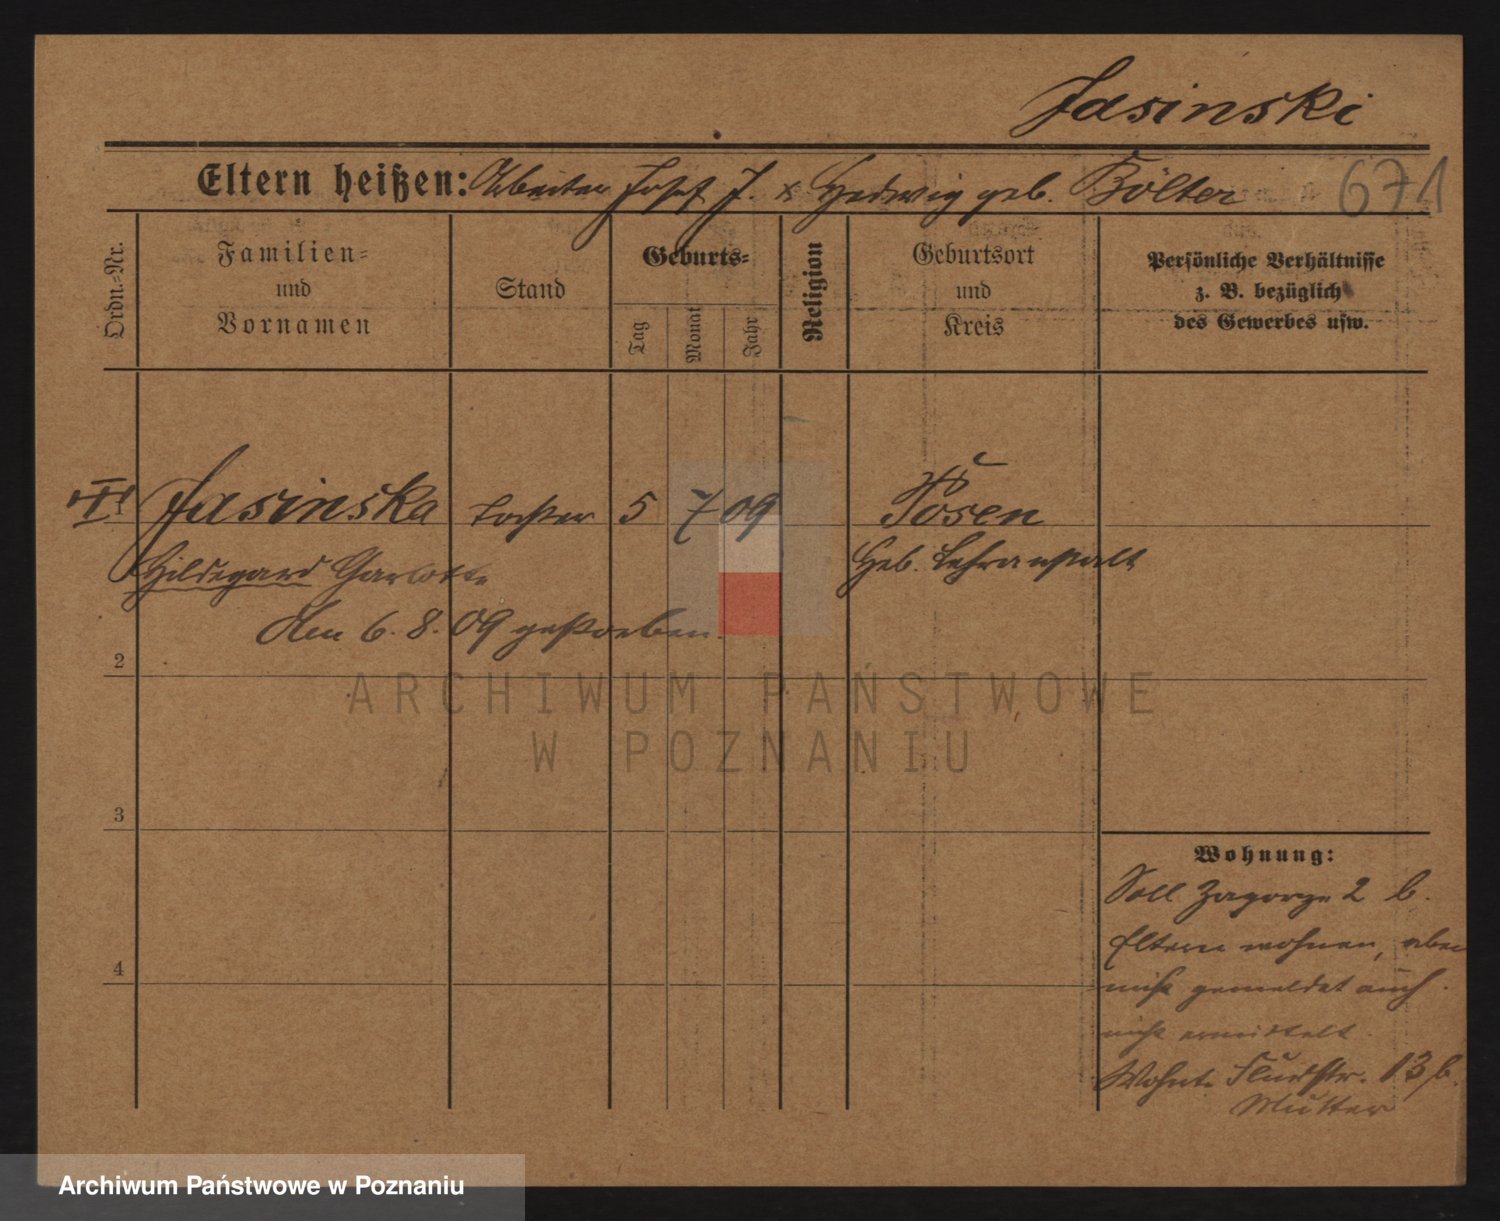 Jasinski
Eltern heißen: Arbeiter Josef J. & Hedwig geb. Bölter
671
Ordn.-Nr.
Familien-
und
Vornamen
Stand
Geburts-
Tag
Monat
Jahr
Religion
Geburtsort
und
Kreis
Persönliche Verhältnisse
z. B. bezüglich
des Gewerbes usw.
Jasinska Tochter 5 7 09 Posen
Hildegard Geb. Lehranstalt
Am 6. 8. 09 gestorben.
2
ARCHIWUM PAŃSTWOWE
W POZNANIU
3
Wohnung:
Soll Zagorze 2 b.
Eltern wohnen, aber
4
nicht gemeldet auch
nicht ermittelt.
Wohnt 13 b.
Mutter
Archiwum Państwowe w Poznaniu